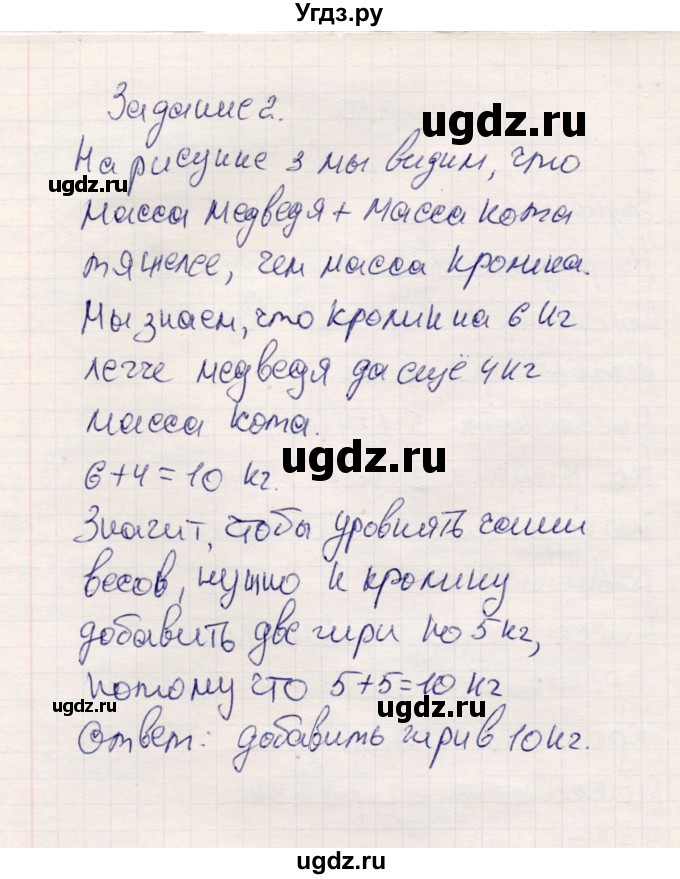 Угдз.ру
Задание 2.
ugdz.ru
На рисунке 3 мы видим, что
ugdz.ru
масса медведя + масса кота
тяжелее, чем масса кролика.
Мы знаем, что кролик на 6 кг
легче медведя да ещё 4 кг
масса кота.
ugdz.ru
6+4=10 кг.
Значит, чтобы уровнять чаши
весов, нужно к кролику
добавить две гири по 5 кг,
потому что 5+5=10 кг
ugdz.ru
ugdz.ru
Ответ: добавить гири в 10 кг.
ugdz.ru